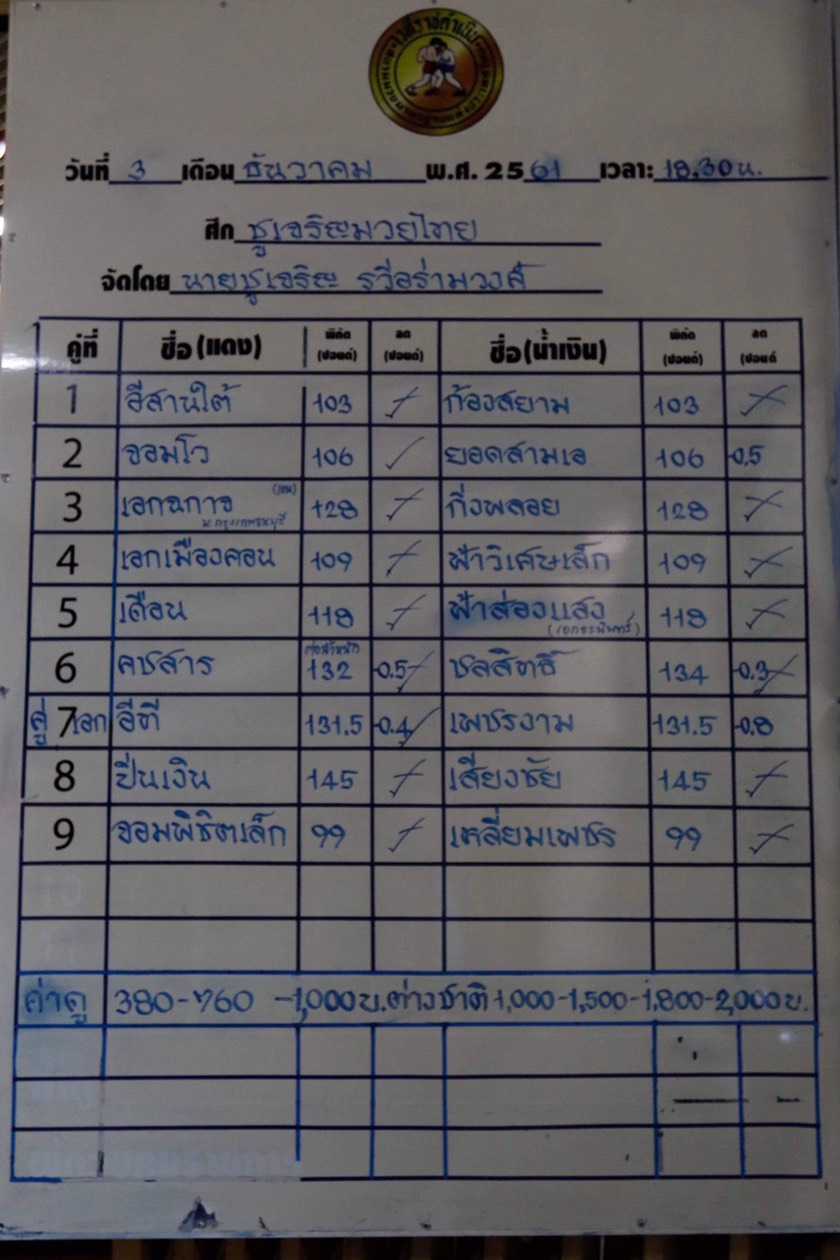 วันที่ 3 เดือน ธันวาคม พ.ศ. 2561 เวลา: 18.30 น.
ศึก ชูเจริญมวยไทย
จัดโดย นายชูเจริญ รวีอร่ามวงศ์
คู่ที่ ชื่อ(แดง) พิกัด (ปอนด์) ลด (ปอนด์) ชื่อ(น้ำเงิน) พิกัด (ปอนด์) ลด (ปอนด์
1 อีสานใต้ 103 ก้องสยาม 103
2 จอมโว 106 ✓ ยอดสามเอ 106 -0.5
3 เอกฉกาจ ม.กรุงเทพธนบุรี 128 กิ่งพลอย 128
4 เอกเมืองคอน 109 ฟ้าวิเศษเล็ก 109
5 เดือน 118 ฟ้าส่องแสง 118
6 คชสาร ต่อน้ำหนัก 132 -0.5 ชลสิทธิ์ 134 -0.3
คู่ 7 เอก อีที 131.5 -0.4 เพชรงาม 131.5 -0.8
8 ปืนเงิน 145 เสียงชัย 145
9 จอมพิชิตเล็ก 99 เหลี่ยมเพชร 99
ค่าดู 380-760 -1,000 บ. ต่างชาติ 1,000-1,500-1,800-2,000 บ.